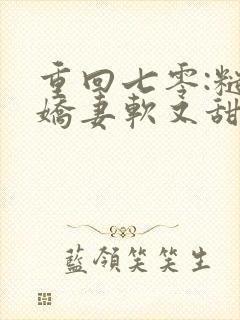 重回七零:糙
嬌妻軟又甜
藍領笑笑生